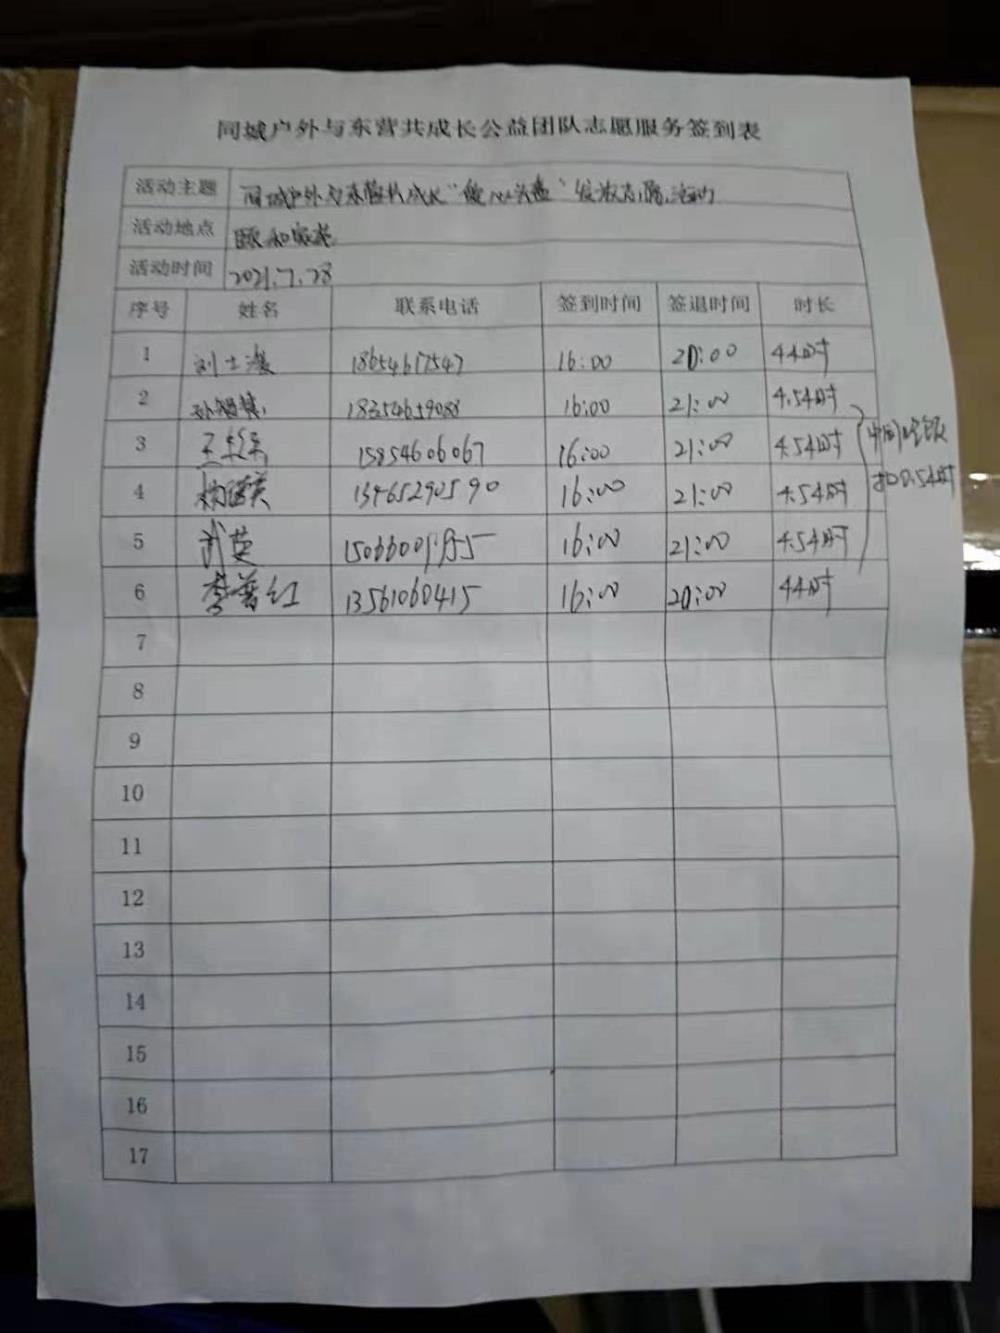 同城户外与东营共成长公益团队志愿服务签到表
活动主题 同城户外与东营共成长“爱心头盔”发放志愿活动
活动地点 颐和家苑
活动时间 2021.7.28
序号 姓名 联系电话 签到时间 签退时间 时长
1 刘士 18654617547 16:00 20:00 4小时
2 孙 18354659088 16:00 21:00 4.5小时
3 王 15954606067 16:00 21:00 4.5小时
中间吃饭
4 杨 13465290590 16:00 21:00 4.5小时
扣0.5小时
5 武英 1506600 16:00 21:00 4.5小时
6 李普红 13561060415 16:00 20:00 4小时
7
8
9
10
11
12
13
14
15
16
17